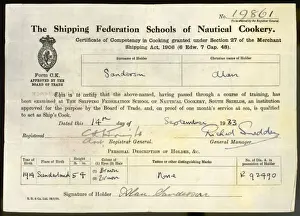 No. 19861
The Shipping Federation Schools of Nautical Cookery.
Certificate of Competency in Cooking granted under Section 27 of the Merchant
Shipping Act, 1906 (6 Edw. 7 Cap. 48).
Surname of Holder
Christian name of Holder
Sanderson
Allan
Form C.K.
APPROVED BY THE
BOARD OF TRADE
This is to certify that the above-named, having passed through a course of training, has
been examined at THE SHIPPING FEDERATION SCHOOL OF NAUTICAL COOKERY, SOUTH SHIELDS, an institution
approved for the purpose by the Board of Trade, and, on proof of one month's service at sea, is qualified to
act as Ship's Cook.
Dated this 14th day of September 1933
Registered
Registrar General.
General Manager.
PERSONAL DESCRIPTION OF HOLDER, &c.
1914 Sunderland 5 4 Brown None R 92490
Brown
Signature of Holder Allan Sanderson